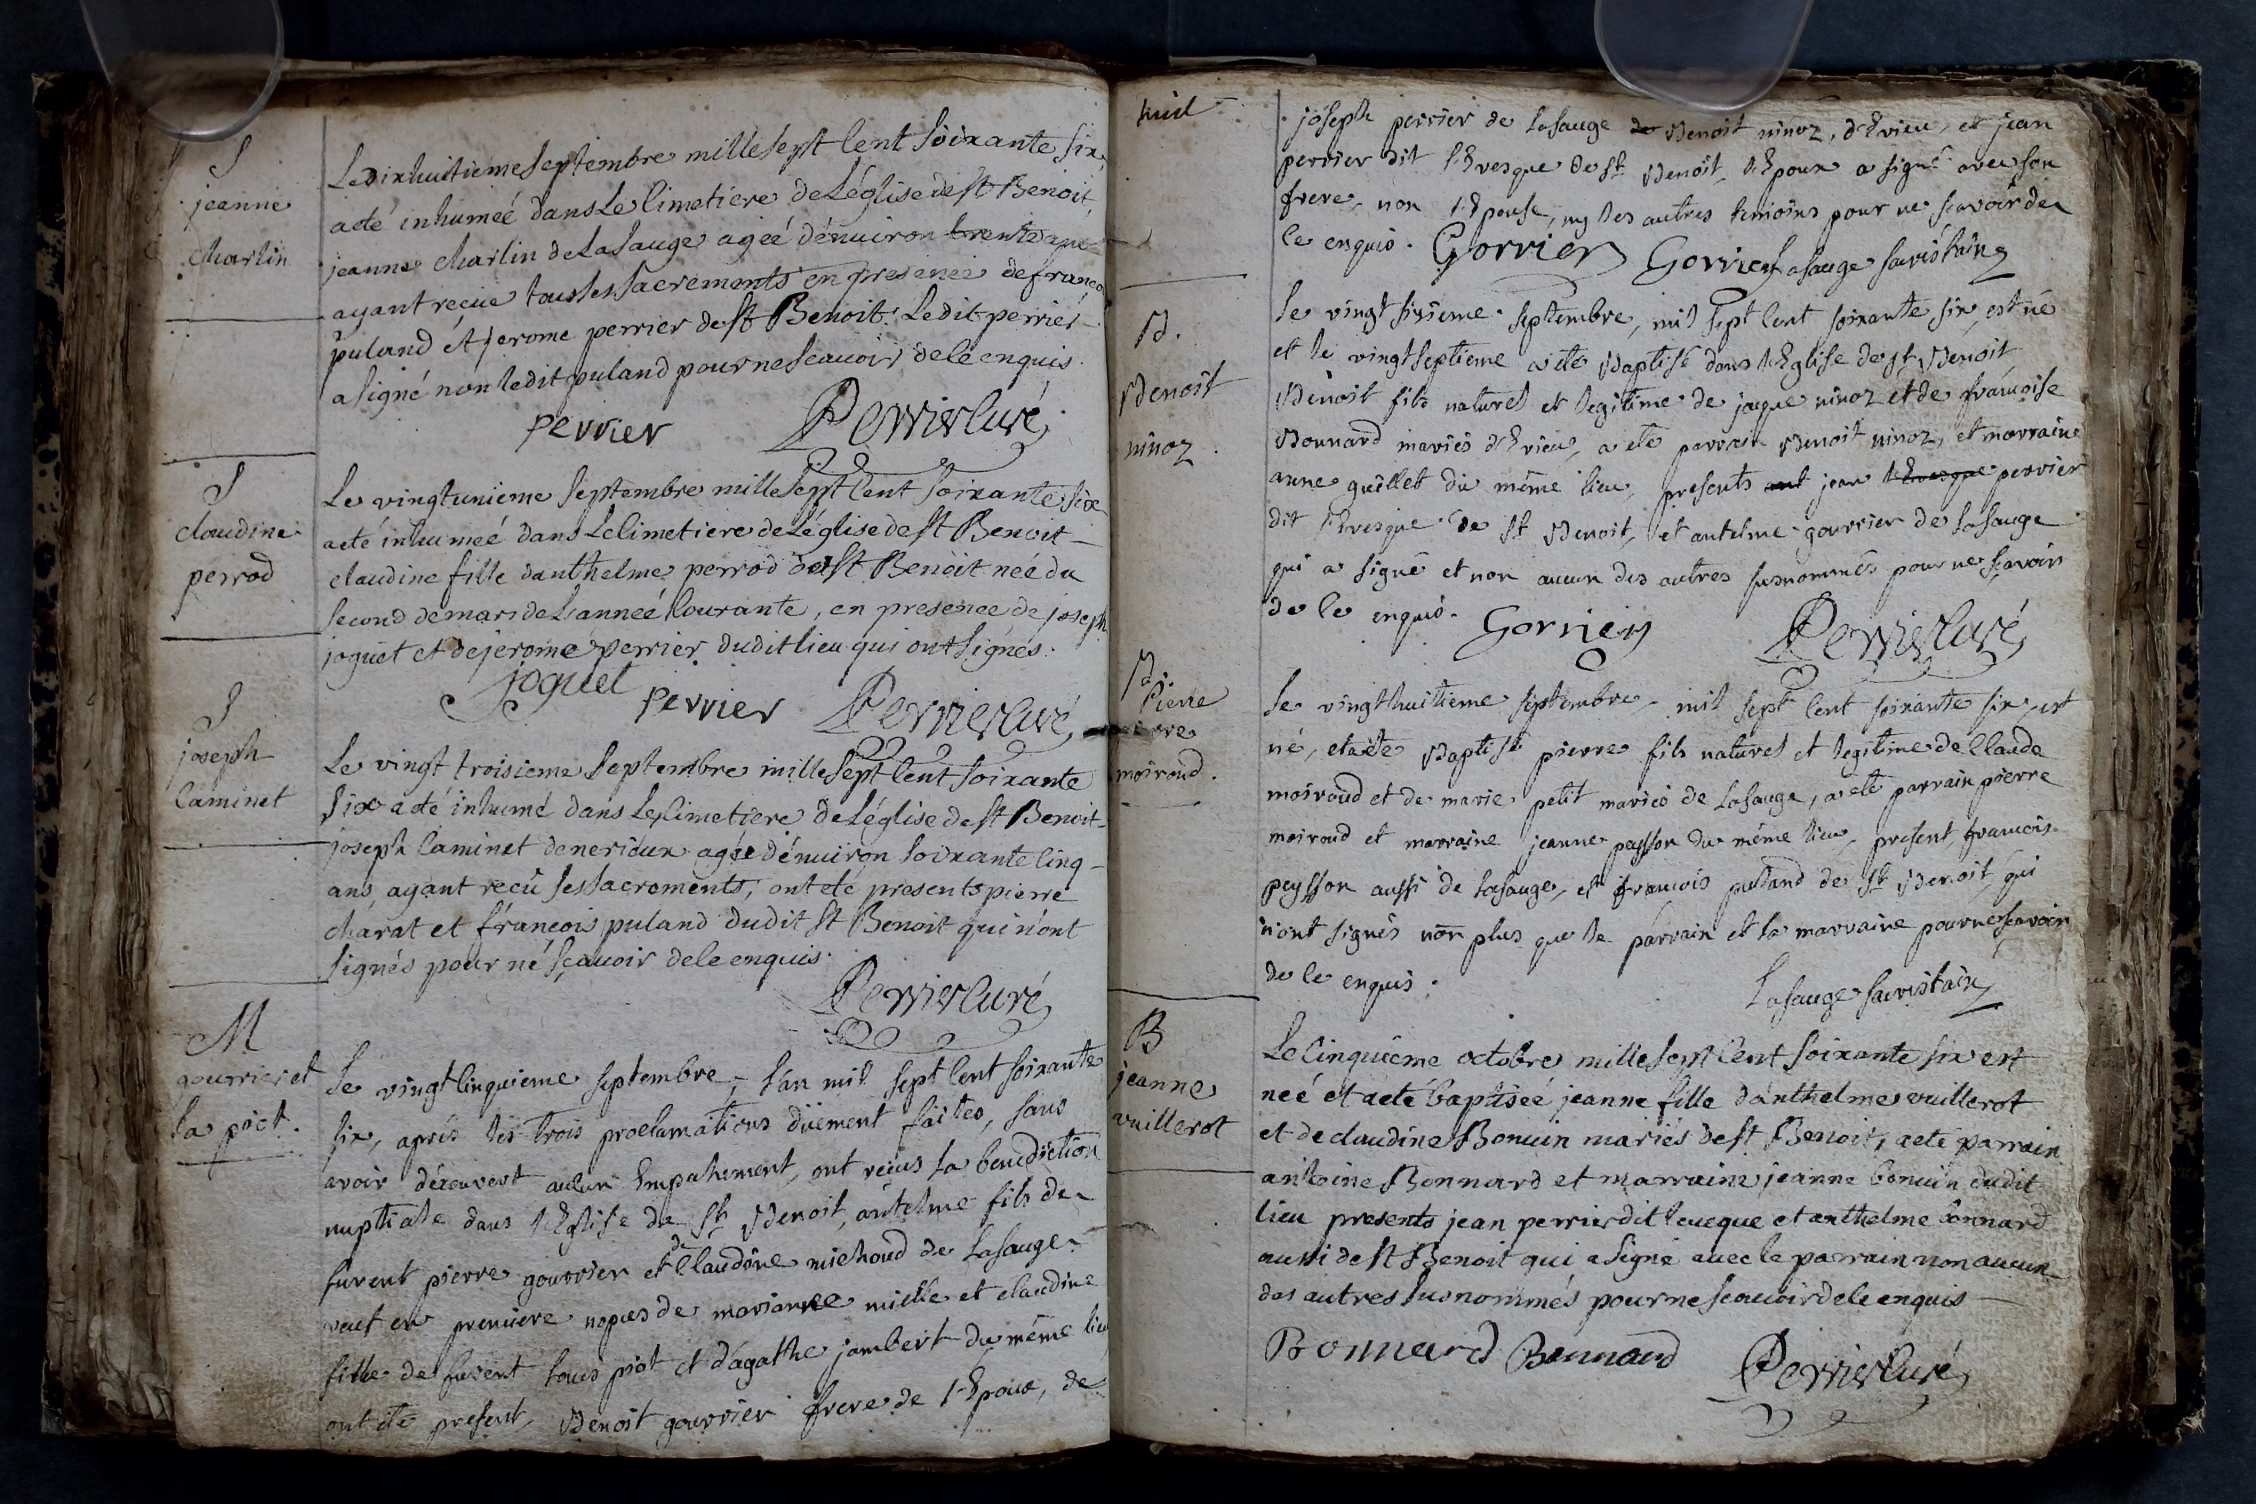 S
jeanne
charlin
Le dixhuitieme septembre mille sept Cent Soixante six
a eté inhumeé dans Le Cimetiere de L'église de st Benoit
jeanne charlin de La Sauge ageé d'énuiron trente ans
ayant recüe tous les Sacrements en presence de franço
puland et jerome perrier de st Benoit. Le dit perrier
a signé non le dit puland pour ne Scauoir de ce enquis
perrier Perrier Curé
S
claudine
perrod
Le vingtunieme Septembre mille Sept Cent Soixante six
a eté inhumeé dans Le Cimetiere de L'église de st Benoit
claudine fille d'anthelme perrod de st Benoit neé du
second de mars de L'anneé Courante, en presence de joseph
joguet et de jerome perrier du dit lieu qui ont Signés.
joguet perrier Perrier Curé
S
joseph
Caminet
Le vingt troisieme Septembre mille Sept Cent Soixante
Six a eté inhumé dans Le Cimetiere de L'église de st Benoit
joseph Caminet de nerieux ageé d'énuiron soixante Cinq
ans, ayant recü ses Sacrements, ont eté presents pierre
charat et françois puland du dit st Benoit qui n'ont
signés pour ne Sçauoir de ce enquis.
Perrier Curé
M
gourrier et
La piot.
Le vingt Cinquieme septembre, L'an mil sept Cent soixante
six, aprés les trois proclamations düement faites, sans
avoir découvert aucun Empechement, ont reçus la benediction
nuptiale dans l'Eglise de St Benoit, antelme fils de
furent pierre gourrier et de Claudine michoud de La sauge
veuf en premiere nopces de marianne mille et claudine
fille de furent Louis piot et d'agathe jambert du même lieu
ont été present, Benoit gourrier frere de l'Epoux, de
joseph perrier de La sauge de Benoit ninoz, d'Evieu, et jean
perrier dit l'Evesque de St Benoit, l'Epoux a signé avec son
frere, non l'Epouse, ny les autres temoins pour ne sçavoir de
ce enquis. Gorrier Gorrier Lasauge sacristain
B.
Benoit
ninoz.
Le vingt sixieme septembre, mil sept Cent soixante six, est né
et le vingt septieme a eté Baptisé dans l'Eglise de st Benoit
Benoit fils naturel et legitime de jaque ninoz et de françoise
Bonnard mariés d'Evieu, a eté parrain Benoit ninoz, et marraine
anne guillet du même lieu, presents ont jean l'Evesque perrier
dit l'Evesque de St Benoit, et antelme gourrier de La sauge
qui a signé et non aucun des autres susnommés pour ne sçavoir
de ce enquis. Gorrier Perrier Curé
B.
Pierre
moiroud.
Le vingt huitieme septembre, mil sept Cent soixante six, est
né, et a eté Baptisé pierre fils naturel et legitime de Claude
moiroud et de marie petit mariés de La sauge, a eté parrain pierre
moiroud et marraine jeanne peysson du même lieu, present, françois
peysson aussi de La sauge, et françois puland de St Benoit, qui
n'ont signés non plus que le parrain et la marraine pour ne sçavoir
de ce enquis.
Lasauge sacristain
B
jeanne
vuillerot
Le Cinquiéme octobre mille Sept Cent Soixante six est
neé et a eté baptiseé jeanne fille d'anthelme vuillerot
et de claudine Bonuin mariés de st Benoit, a eté parrain
antoine Bonnard et marraine jeanne bonuin du dit
lieu presents jean perrier dit leueque et anthelme bonnard
aussi de st Benoit qui a Signé auec le parrain non aucun
des autres Susnommés pour ne Scauoir de ce enquis
Bonnard Bonnard Perrier Curé